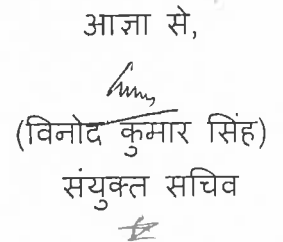 आज्ञा से,
(विनोद कुमार सिंह)
संयुक्त सचिव